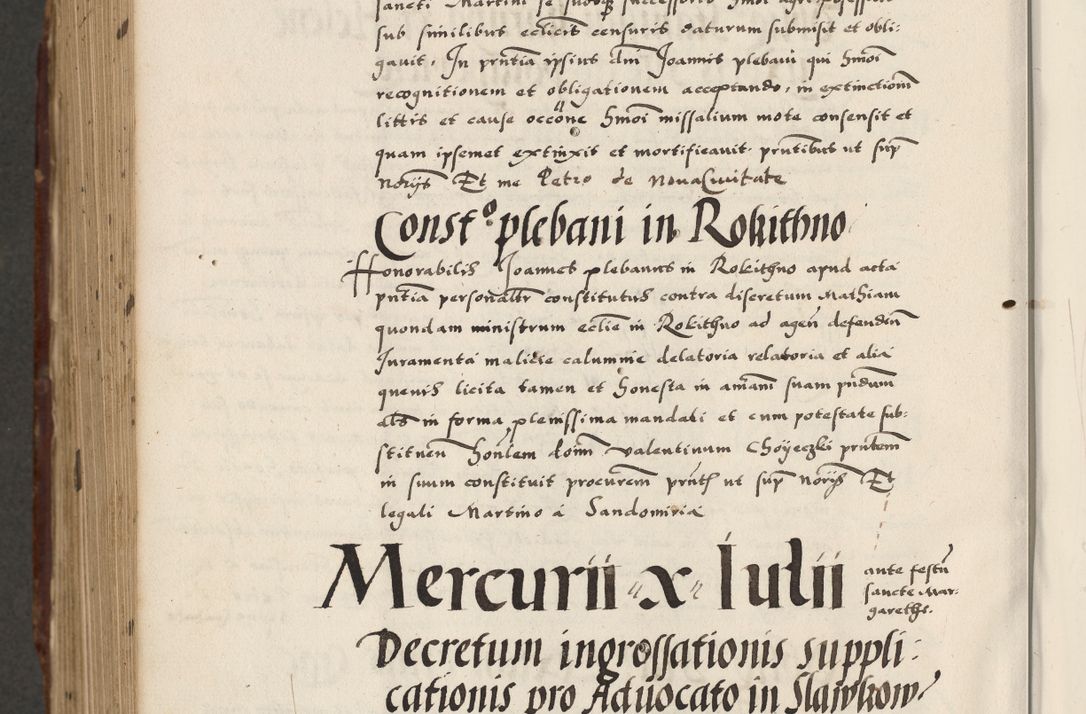 sub similibus ecclicis censuris daturum submisit et obli:
gavit, In pñtia ipsius dñi Joannis plebani qui hmoi
recognitionem et obligationem acceptando, in extinctionẽ
littis et cause occõne hmoi missalium mote consensit et
quam ipsemet extinxit et mortificavit pñtibus ut sup
Norijs Et me Petro de Nova Civitate
Const.o plebani in Rokithno
Honorabilis Joannes plebanus in Rokithno apud acta
pñtia personaltr constitutus contra discretum Mathiam
quondam ministrum ecclie in Rokithno ad agen defenden
Juramenta malicie calumnie delatoria relatoria et alia
quevis licita tamen et honesta in aĩam suam pñdum
als in forma plenissima mandati et cum potestate sub:
stituen honlem domn Valentinum Choyeczki pñtem
in suum constituit procurem pñtes ut sup Norijs Et
legali Martino á Sandomiria
Mercurii x Iulii
ante festũ
sancte Mar:
garethe.
Decretum ingrossationis suppli:
cationis pro Advocato in Slawkow